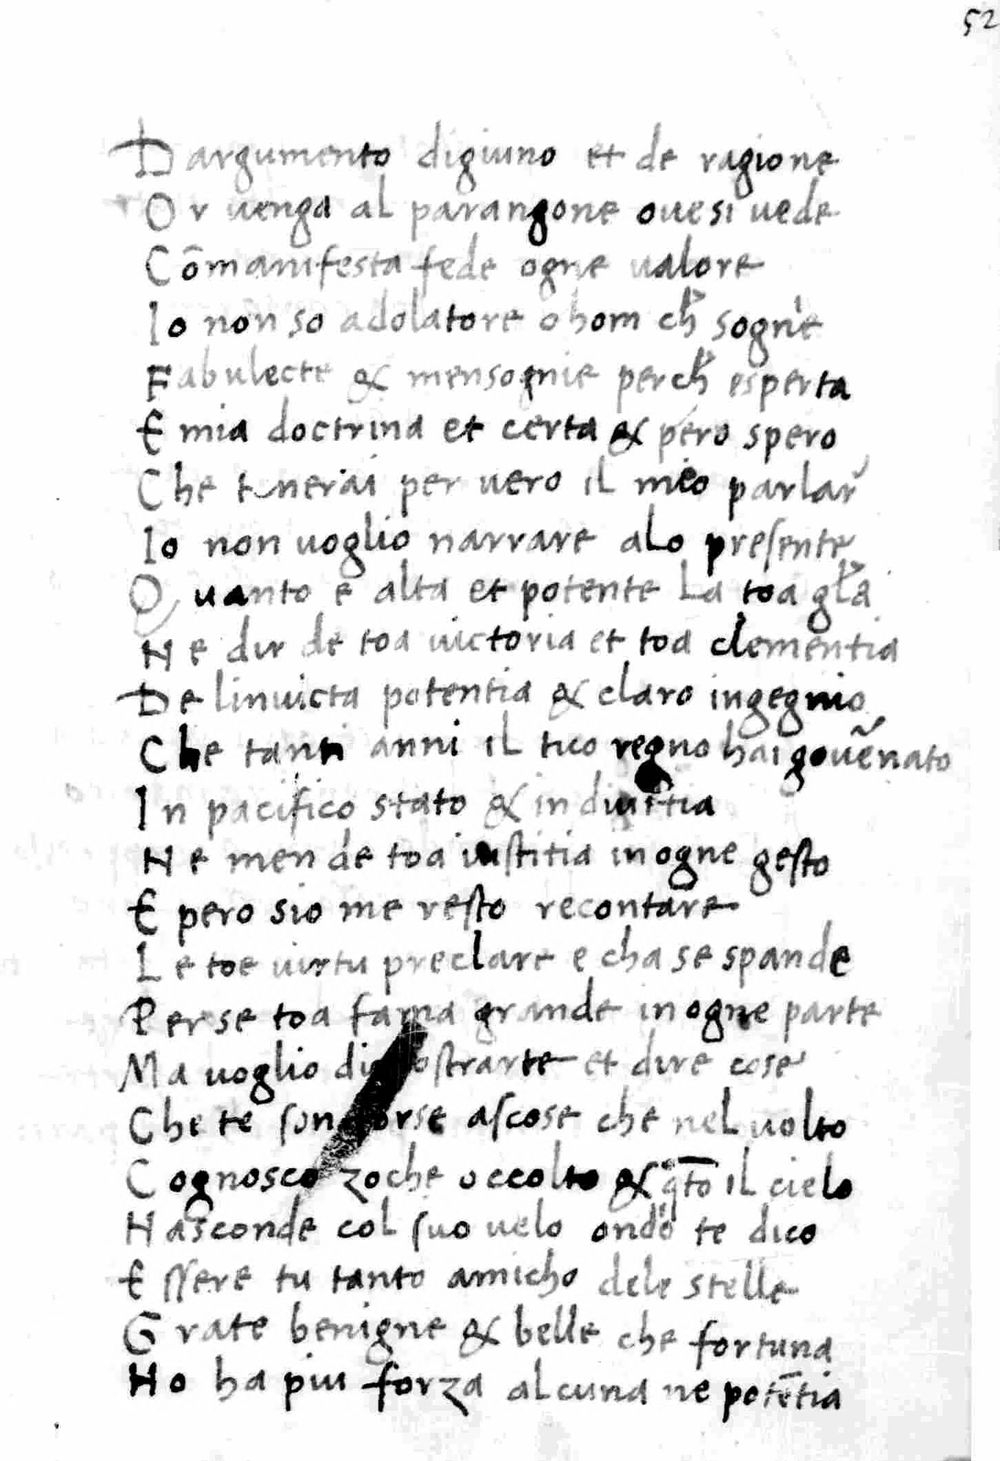 52
Dargumento digiuno et de ragione
Or uenga al parangone oue si uede
Cōmanifesta fede ogne ualore
Io non so adolatore o hom ch̓ sogne
Fabulecte & mensognie perch̓ esperta
E mia doctrina et certa & pero spero
Che tenerai per uero il mio parlar
Io non uoglio narrare alo presente
Quanto e alta et potente La toa gl̓a
Ne dir de toa uictoria et toa clementia
De linuicta potentia & claro ingegnio
Che tanti anni il tico regno hai gouēnato
In pacifico stato & in diuitia
Ne men de toa iustitia in ogne gesto
E pero sio me resto recontare
Le toe uirtu preclare e cha se spande
Per se toa fama grande in ogne parte
Ma uoglio dimostrarte et dire cose
Che te son forse ascose che nel uolto
Cognosco zoche occolto & q̄to il cielo
Nasconde col suo uelo ondo te dico
Essere tu tanto amicho dele stelle
Grate benigne & belle che fortuna
No ha piu forza alcuna ne potētia